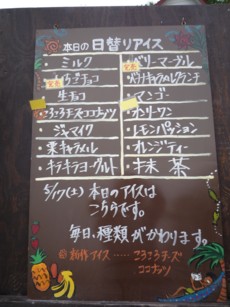 本日の日替りアイス
ミルク
いちごチョコ
生チョコ
ごろごろチーズココナッツ
ジャマイカ
栗キャラメル
キラキラヨーグルト
ベリーマーブル
バナナキャラメルクランチ
マンゴー
オンリーワン
レモンパッション
オレンジティー
抹茶
5/17(土) 本日のアイスは
こちらです。
毎日、種類がかわります。
新作アイス……ごろごろチーズ
ココナッツ